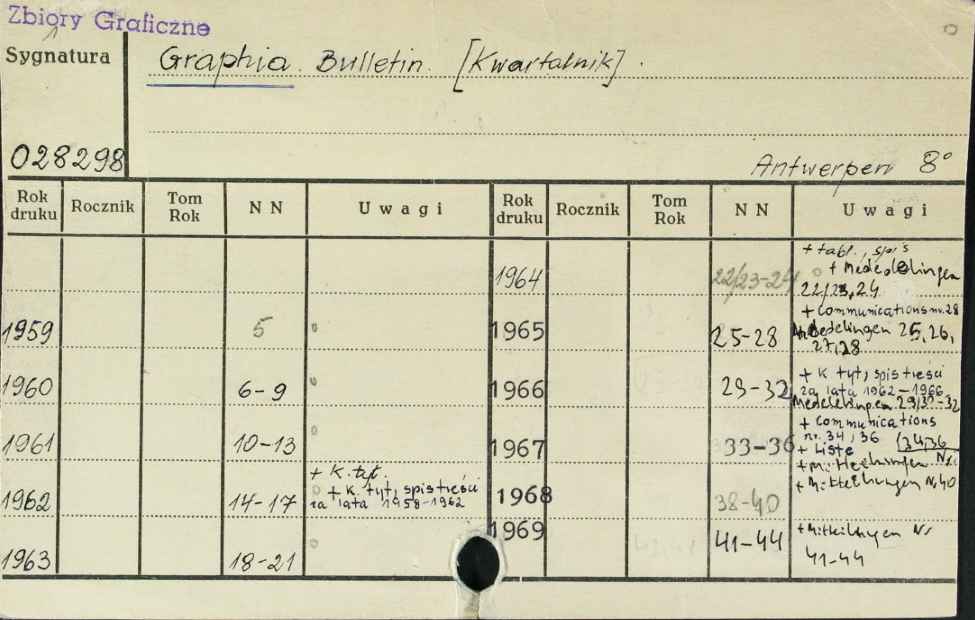 Zbiory Graficzne
Sygnatura
Graphia. Bulletin. [Kwartalnik].
028298
Antwerpen 8°
Rok druku Rocznik Tom Rok NN Uwagi Rok druku Rocznik Tom Rok NN Uwagi
1964 22/23-24 + tabl., spis
+ Mededelingen
22/23,24
1959 5 1965 25-28 + communications nr. 28
Mededelingen 25,26,
27,28
1960 6-9 1966 29-32 + k tyt, spis treści
za lata 1962-1966
Mededelingen 29/30-32
1961 10-13 1967 33-36 + communications
nr. 34, 36 (34,36
+ Liste
1962 14-17 + k. tyt.
+ k. tyt, spis treści
za lata 1958-1962
1968 38-40 + Mitteilungen Nr 40
1969 41-44 + Mitteilungen Nr
41-44
1963 18-21